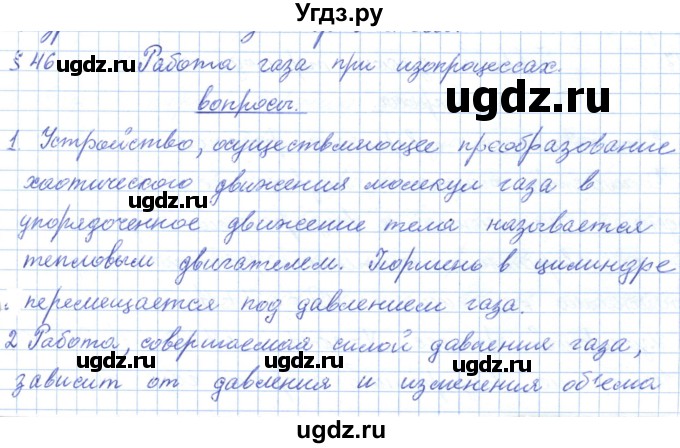 Угдз.ру
§ 46 Работа газа при изопроцессах.
вопросы.
1. Устройство, осуществляющее преобразование
хаотического движения молекул газа в
упорядоченное движение тела называется
тепловым двигателем. Поршень в цилиндре
перемещается под давлением газа.
2 Работа, совершаемая силой давления газа,
зависит от давления и изменения объёма
ugdz.ru
ugdz.ru
ugdz.ru
ugdz.ru
ugdz.ru
ugdz.ru
ugdz.ru
ugdz.ru
ugdz.ru
ugdz.ru
Угдз.ру